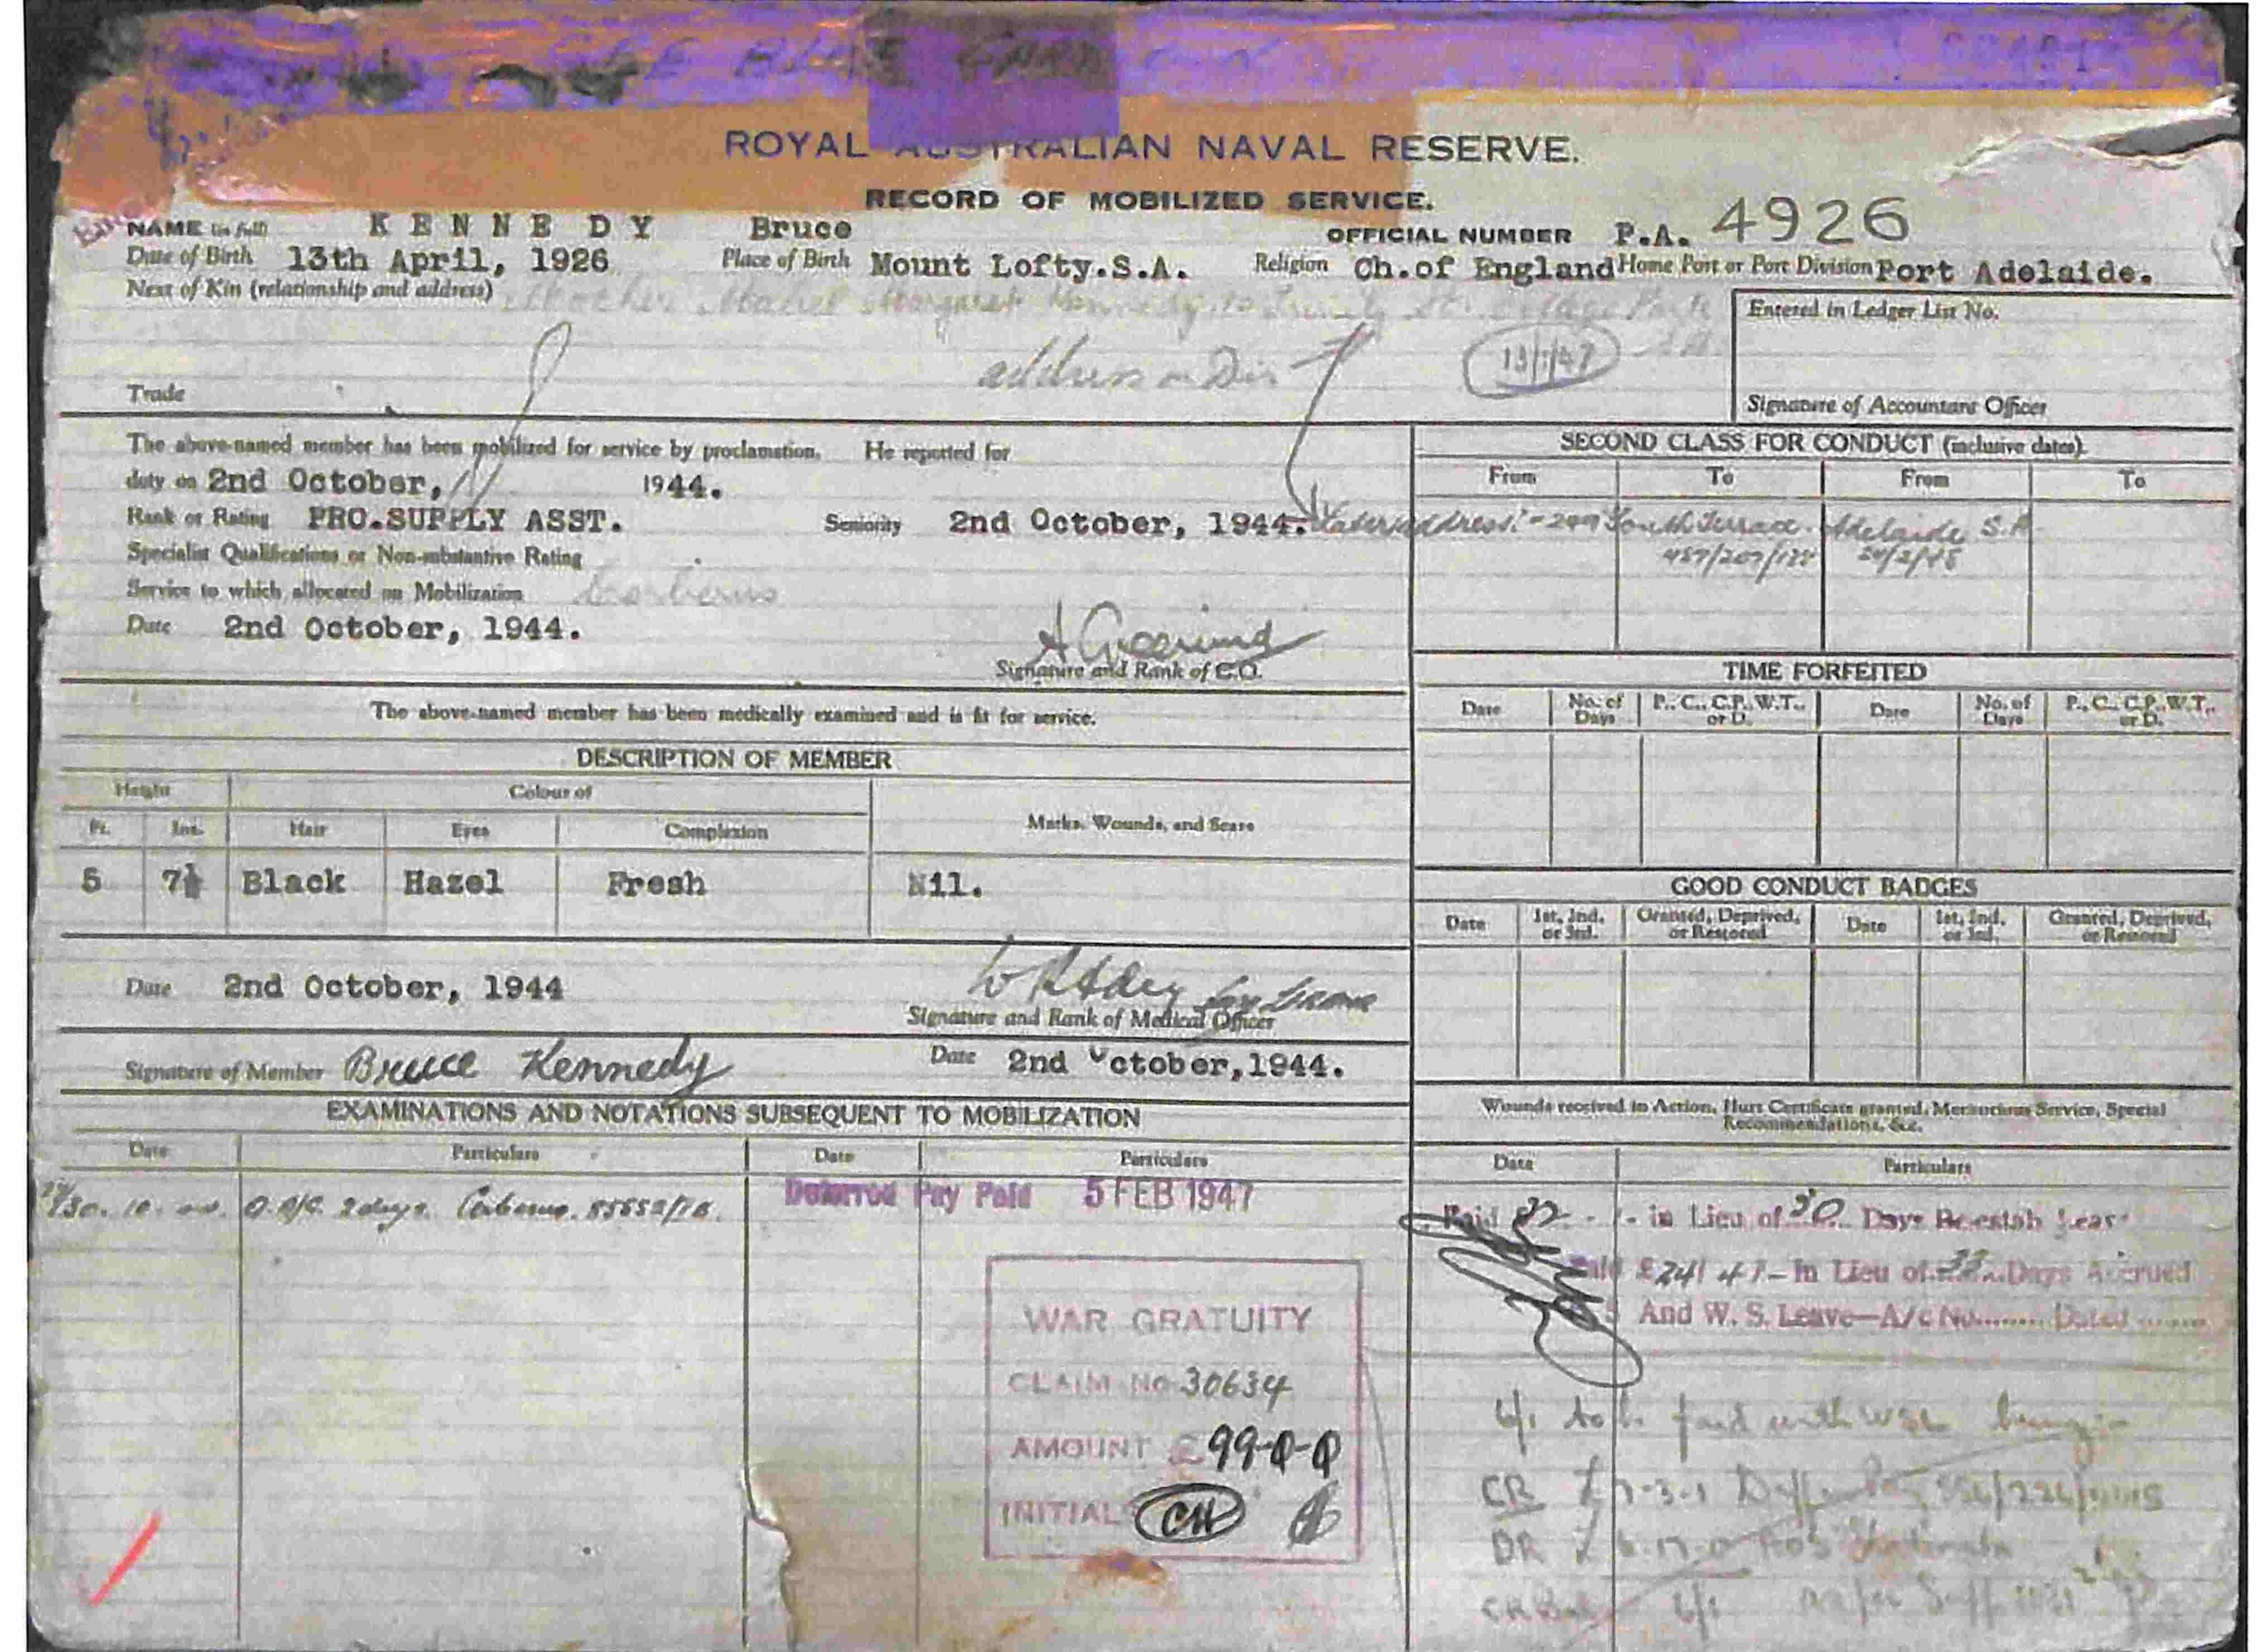 ROYAL AUSTRALIAN NAVAL RESERVE.
RECORD OF MOBILIZED SERVICE.
NAME (in full) KENNEDY Bruce OFFICIAL NUMBER P.A. 4926
Date of Birth 13th April, 1926 Place of Birth Mount Lofty.S.A. Religion Ch.of England Home Port or Port Division Port Adelaide.
Next of Kin (relationship and address) Mother Mabel Margaret Kennedy St. Park
Entered in Ledger List No.
address on Dis 13/1/47
Trade
Signature of Accountant Officer
The above-named member has been mobilized for service by proclamation. He reported for
duty on 2nd October, 1944.
Rank or Rating PRO.SUPPLY ASST. Seniority 2nd October, 1944.
Later address:- 249 South Terrace. Adelaide S.A.
Specialist Qualifications or Non-substantive Rating
Service to which allocated on Mobilization Cerberus
Date 2nd October, 1944.
Signature and Rank of C.O.
SECOND CLASS FOR CONDUCT (inclusive dates).
From To From To
TIME FORFEITED
Date No. of Days P., C., C.P., W.T., or D. Date No. of Days P., C., C.P., W.T., or D.
The above-named member has been medically examined and is fit for service.
DESCRIPTION OF MEMBER
Height Colour of Marks, Wounds, and Scars
Ft. Ins. Hair Eyes Complexion
5 7½ Black Hazel Fresh Nil.
GOOD CONDUCT BADGES
Date 1st, 2nd, or 3rd. Granted, Deprived, or Restored Date 1st, 2nd, or 3rd. Granted, Deprived, or Restored
Date 2nd October, 1944
Signature and Rank of Medical Officer
Signature of Member Bruce Kennedy Date 2nd October,1944.
EXAMINATIONS AND NOTATIONS SUBSEQUENT TO MOBILIZATION
Date Particulars Date Particulars
2 days. Cerberus.
Deferred Pay Paid 5 FEB 1947
WAR GRATUITY
CLAIM No 30634
AMOUNT £ 99-0-0
INITIALS CH
Wounds received in Action, Hurt Certificate granted, Meritorious Service, Special
Recommendations, &c.
Date Particulars
Paid in Lieu of 30 Days Re-estab Leave
Paid £24/ 4/- In Lieu of 33 Days Accrued
And W. S. Leave—A/c No......... Dated .......
to be paid with WSL being:-
CR £
DR £